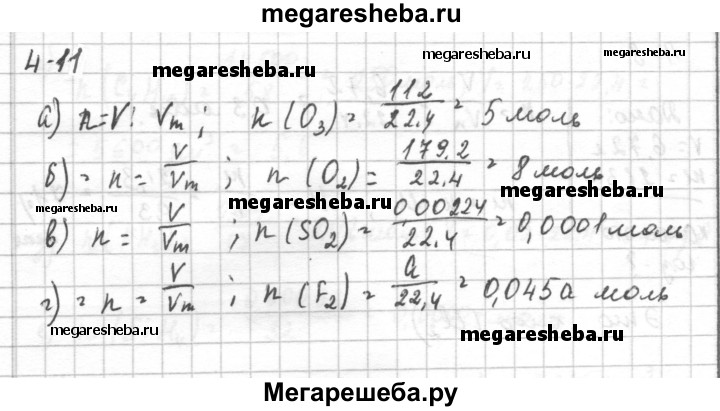 megaresheba.ru
4-11
megaresheba.ru
megaresheba.ru
megaresheba.ru
а) n=V:Vm; n(O3)= 112/22.4 = 5 моль
б) = n= V/Vm; n(O2)= 179.2/22.4 = 8 моль
megaresheba.ru
megaresheba.ru
megaresheba.ru
в) n= V/Vm; n(SO2)= 0,00224/22.4 = 0,0001 моль
г) = n= V/Vm; n(F2)= a/22,4 = 0,045a моль
megaresheba.ru
megaresheba.ru
Мегарешеба.ру